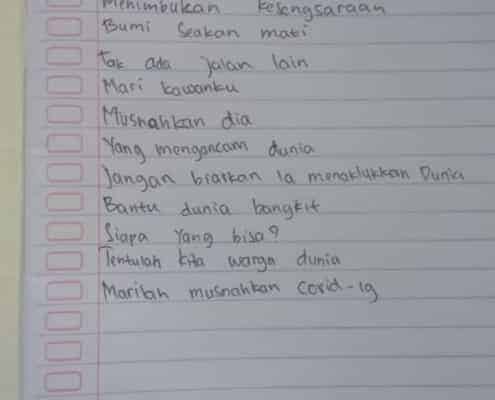 Menimbulkan kesengsaraan
Bumi Seakan mati
Tak ada jalan lain
Mari kawanku
Musnahkan dia
Yang mengancam dunia
Jangan biarkan ia menaklukkan Dunia
Bantu dunia bangkit
Siapa Yang bisa?
Tentulah kita warga dunia
Marilah musnahkan covid-19